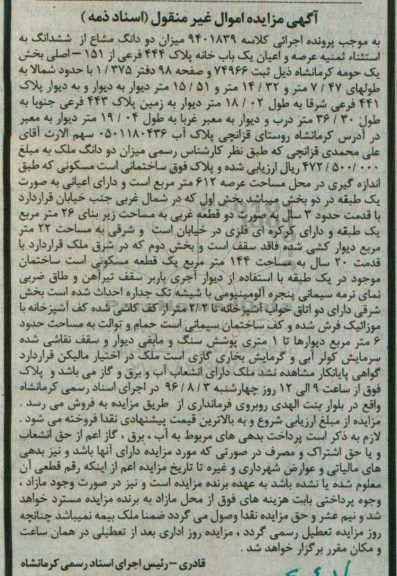 آگهی مزایده اموال غیر منقول (اسناد ذمه)
به موجب پرونده اجرائی کلاسه ۹۴۰۱۸۳۹ میزان دو دانگ مشاع از ششدانگ به
استثناء ثمنیه عرصه و اعیان یک باب خانه پلاک ۴۴۴ فرعی از ۱۵۱ – اصلی بخش
یک حومه کرمانشاه ذیل ثبت ۷۴۹۶۶ و صفحه ۹۸ دفتر ۱/۳۷۵ با حدود شمالا به
طولهای ۷/۴۷ متر و ۱۴/۳۲ متر و ۱۵/۵۱ متر دیوار به دیوار و به دیوار پلاک
۴۴۱ فرعی شرقا به طول ۱۸/۰۲ متر دیوار به زمین پلاک ۴۴۳ فرعی جنوبا به
طول ۳۶/۳۰ متر درب و دیوار به معبر غربا به طول ۱۹/۰۴ متر دیوار به معبر
در آدرس کرمانشاه روستای قزانچی پلاک آب ۰۵۰۱۱۸۰۴۳۶ سهم الارث آقای
علی محمدی قزانچی که طبق نظر کارشناس رسمی میزان دو دانگ ملک به مبلغ
۴۷۲/۵۰۰/۰۰۰ ریال ارزیابی شده و پلاک فوق ساختمانی است مسکونی که طبق
اندازه گیری در محل مساحت عرصه ۶۱۲ متر مربع است و دارای اعیانی به صورت
یک طبقه در دو بخش میباشد بخش اول که در شمال غربی جنب خیابان قراردارد
با قدمت حدود ۳ سال به صورت دو قطعه غربی به مساحت زیر بنای ۲۶ متر مربع
یک طبقه و دارای کرکره ای فلزی در خیابان است و شرقی به مساحت ۲۲ متر
مربع دیوار کشی شده فاقد سقف است و بخش دوم که در شرق ملک قراردارد با
قدمت ۲۰ سال به مساحت ۱۴۴ متر مربع یک قطعه مسکونی است ساختمان
موجود در یک طبقه با استفاده از دیوار آجری باربر سقف تیرآهن و طاق ضربی
نمای نرمه سیمانی پنجره آلومینیومی با شیشه تک جداره احداث شده است بخش
شرقی دارای دو اتاق خواب آشپزخانه تا ۲/۲ متر از کف کاشی شده کف آشپزخانه با
موزائیک فرش شده و کف ساختمان سیمانی است حمام و توالت به مساحت حدود
۶ متر مربع دیوارها تا ۱ متری پوشش سنگ و مابقی دیوار و سقف نقاشی شده
سرمایش کولر آبی و گرمایش بخاری گازی است ملک در اختیار مالیکن قراردارد
گواهی پایانکار مشاهده نشد ملک دارای انشعاب آب و برق و گاز می باشد و پلاک
فوق از ساعت ۹ الی ۱۲ روز چهارشنبه ۹۶/۸/۳ در اجرای اسناد رسمی کرمانشاه
واقع در بلوار بنت الهدی روبروی فرمانداری از طریق مزایده به فروش می رسد .
مزایده از مبلغ ارزیابی شروع و به بالاترین قیمت پیشنهادی نقدا فروخته می شود .
لازم به ذکر است پرداخت بدهی های مربوط به آب ، برق ، گاز اعم از حق انشعاب
و یا حق اشتراک و مصرف در صورتی که مورد مزایده دارای آنها باشد و نیز بدهی
های مالیاتی و عوارض شهرداری و غیره تا تاریخ مزایده اعم از اینکه رقم قطعی آن
معلوم شده یا نشده باشد به عهده برنده مزایده است و نیز در صورت وجود مازاد ،
وجوه پرداختی بابت هزینه های فوق از محل مازاد به برنده مزایده مسترد خواهد
شد و نیم عشر و حق مزایده نقدا وصول می گردد ضمنا ملک بیمه نمیباشد چنانچه
روز مزایده تعطیل رسمی گردد ، مزایده روز اداری بعد از تعطیلی در همان ساعت
و مکان مقرر برگزار خواهد شد .
قادری – رئیس اجرای اسناد رسمی کرمانشاه